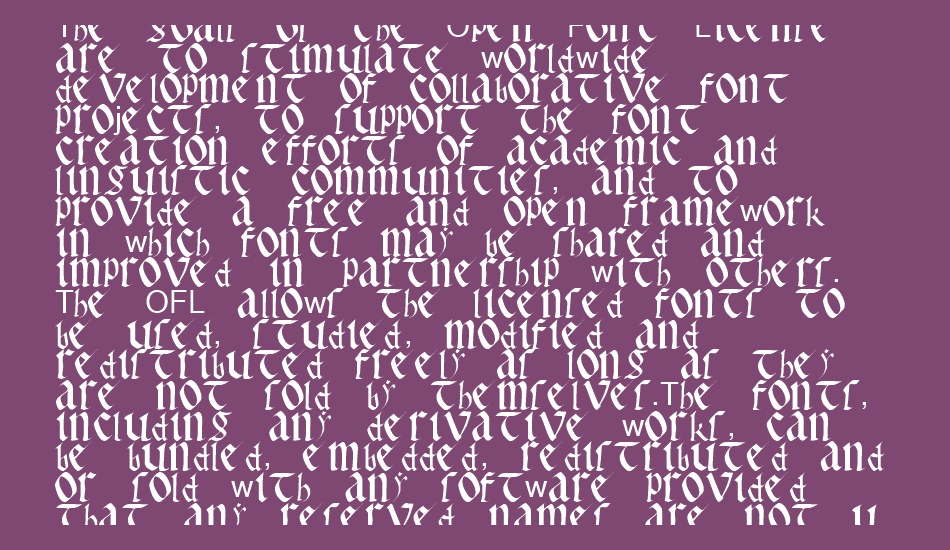 The goals of the Open Font License
are to stimulate worldwide
development of collaborative font
projects, to support the font
creation efforts of academic and
linguistic communities, and to
provide a free and open framework
in which fonts may be shared and
improved in partnership with others.
The OFL allows the licensed fonts to
be used, studied, modified and
redistributed freely as long as they
are not sold by themselves.The fonts,
including any derivative works, can
be bundled, embedded, redistributed and
or sold with any software provided
that any reserved names are not u